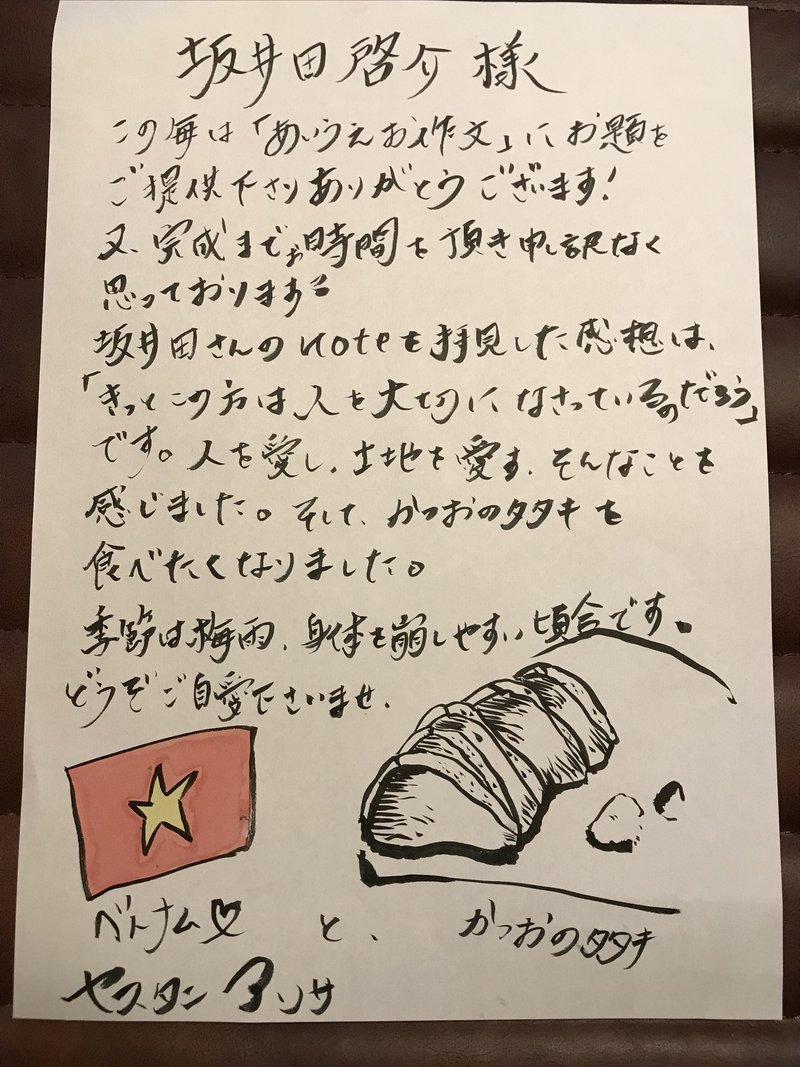 坂井田啓介 様
この毎は「あいうえお作文」にお題を
ご提供下さりありがとうございます!
又、完成までお時間を頂き申し訳なく
思っております
坂井田さんのnoteを拝見した感想は、
「きっとこの方は人を大切になさっているのだろう」
です。人を愛し、土地を愛す、そんなことを
感じました。そして、かつおのタタキを
食べたくなりました。
季節は梅雨、身体を崩しやすい頃合です。
どうぞご自愛下さいませ、
ベトナム♡ と、 かつおのタタキ
ヤスタン アリサ